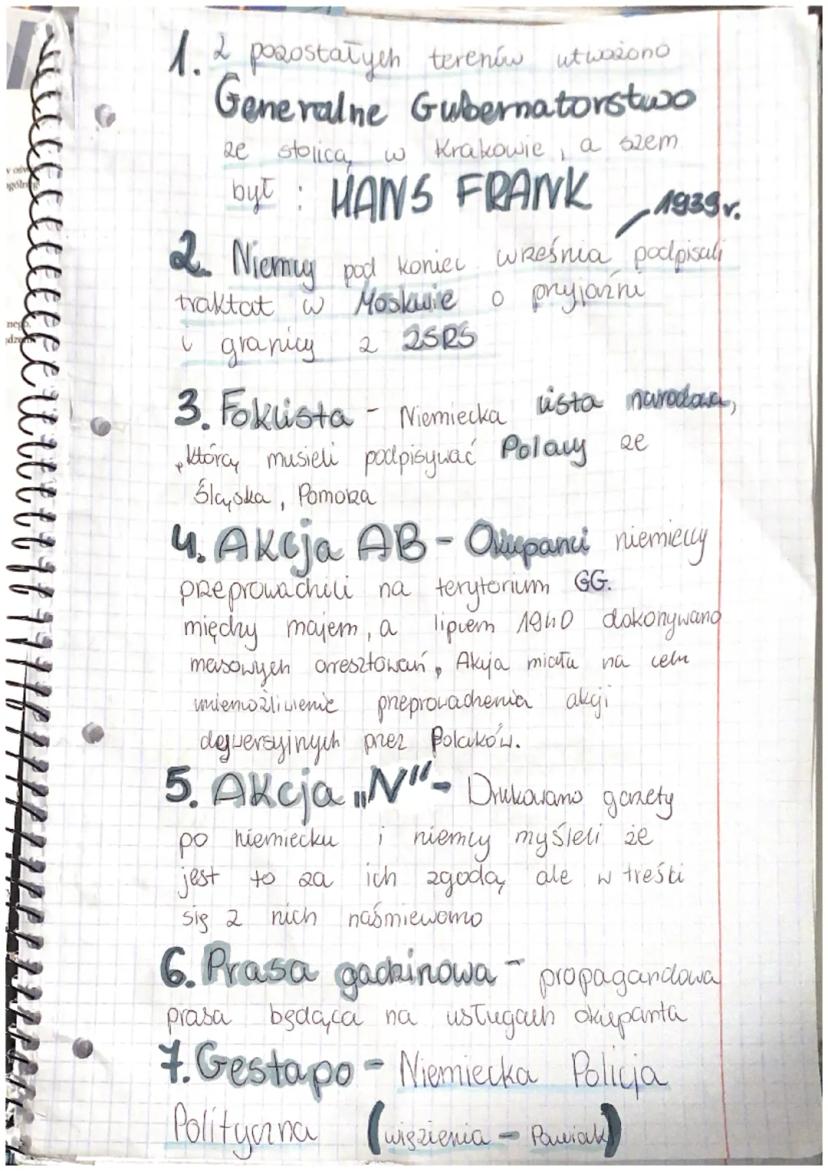 1. z pozostałych terenów utwożono
Generalne Gubernatorstwo
ze stolicą w Krakowie, a szem
był : HANS FRANK
1939 r.
2. Niemcy pod koniec września podpisali
traktat w Moskwie o przyjaźni
i granicy z ZSRS
3. Foklista - Niemiecka lista narodowa,
którą musieli podpisywać Polacy ze
Śląska, Pomoża
4. Akcja AB - Okupanci niemieccy
przeprowadzili na terytorium GG.
między majem, a lipcem 1940 dokonywano
masowych aresztowań, Akcja miała na celu
uniemożliwienie przeprowadzenia akcji
dywersyjnych przez Polaków.
5. Akcja „N" - Drukowano gazety
po niemiecku i niemcy myśleli że
jest to za ich zgodą, ale w treśći
się z nich naśmiewano
6. Prasa gadzinowa - propagandowa
prasa będąca na usługach okupanta
7. Gestapo - Niemiecka Policja
Polityczna (więzienia - Pawiak)